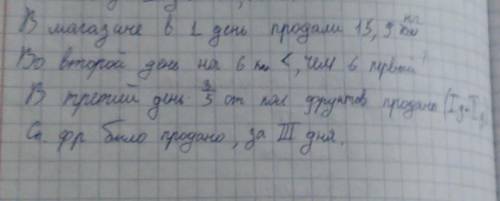 В магазине в 1 день продали 15, 9 кг
Во второй день на 6 км <, чем в первый
В третий день 3/5 от кол фруктов продано (I д
Ск. фр было продано, за III дня.